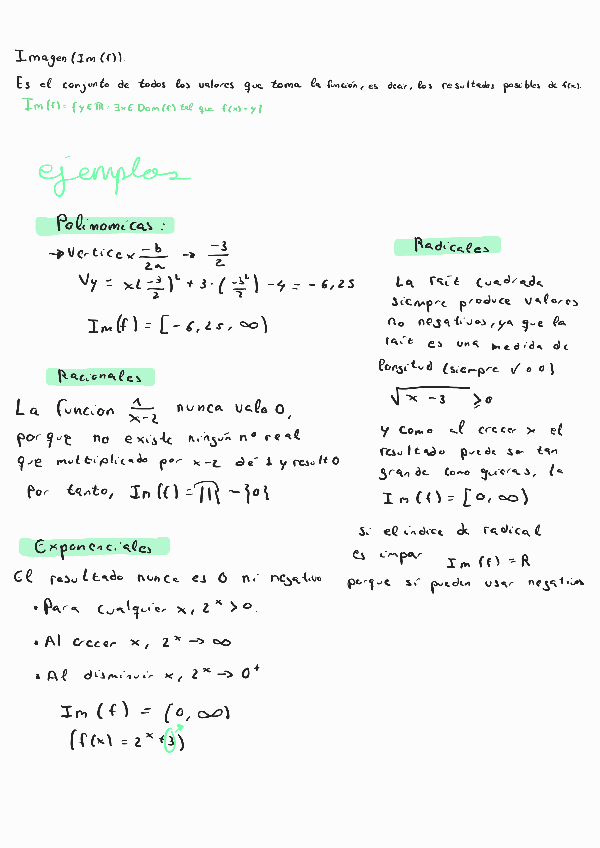 Imagen (Im (f)).
Es el conjunto de todos los valores que toma la función, es decir, los resultados posibles de f(x).
Im(f) = {y ∈ ℝ : ∃x ∈ Dom(f) tal que f(x) = y}
ejemplos
Polinomicas :
→ Vertice x -b/2a → -3/2
Vy = x(-3/2)² + 3·(-3/2) - 4 = -6,25
Im(f) = [-6,25, ∞)
Racionales
La funcion 1/x-2 nunca vale 0,
porque no existe ningún nº real
que multiplicado por x-2 dé 1 y result 0
Por tanto, Im(f) = ℝ - {0}
Exponenciales
El resultado nunca es 0 ni negativo
• Para cualquier x, 2ˣ > 0.
• Al crecer x, 2ˣ → ∞
• Al disminuir x, 2ˣ → 0⁺
Im(f) = (0, ∞)
(f(x) = 2ˣ + 3)
Radicales
La raíz cuadrada
siempre produce valores
no negativos, ya que la
raíz es una medida de
longitud (siempre √ o 0)
√x - 3 ≥ 0
y como al crecer x el
resultado puede ser tan
grande como quieras, la
Im(f) = [0, ∞)
si el índice de radical
es impar Im(f) = R
porque si pueden usar negativos